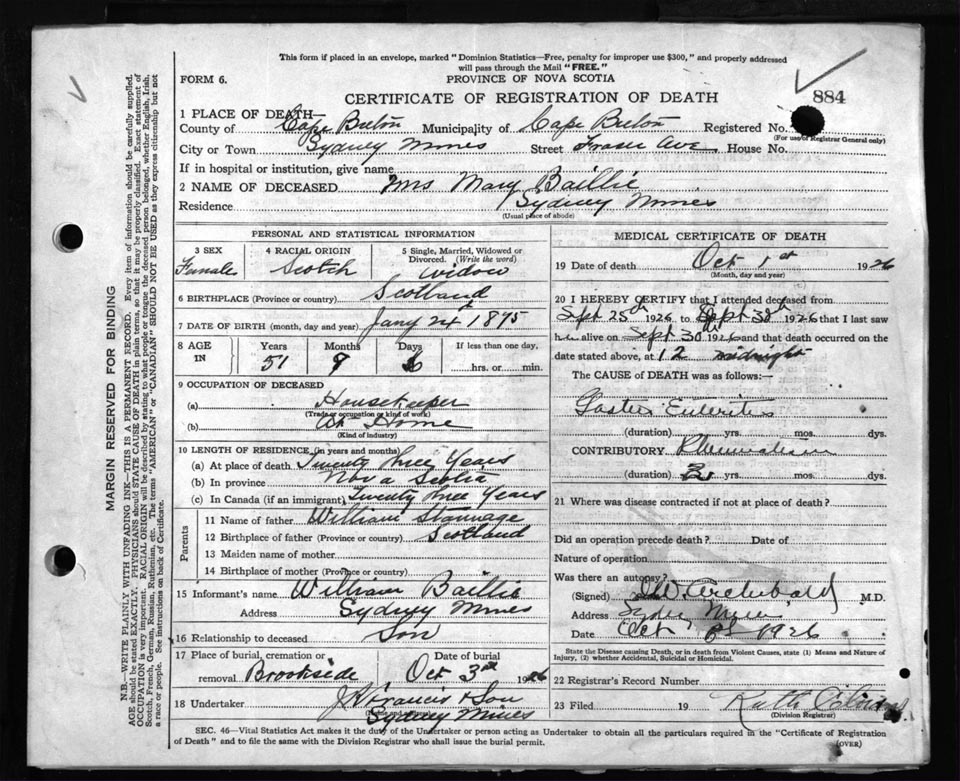 This form if placed in an envelope, marked "Dominion Statistics—Free, penalty for improper use $300," and properly addressed
will pass through the Mail "FREE."
FORM 6.
PROVINCE OF NOVA SCOTIA
CERTIFICATE OF REGISTRATION OF DEATH
884
1 PLACE OF DEATH—
County of Cape Breton Municipality of Cape Breton Registered No.
(For use of Registrar General only)
City or Town Sydney Mines Street Fraser Ave House No.
If in hospital or institution, give name
2 NAME OF DECEASED Mrs Mary Baillie
Residence Sydney Mines
(Usual place of abode)
PERSONAL AND STATISTICAL INFORMATION
3 SEX Female
4 RACIAL ORIGIN Scotch
5 Single, Married, Widowed or
Divorced. (Write the word)
widow
6 BIRTHPLACE (Province or country) Scotland
7 DATE OF BIRTH (month, day and year) Jany 24th 1875
8 AGE IN
Years Months Days If less than one day,
51 8 6 hrs. or min.
9 OCCUPATION OF DECEASED
(a) Housekeeper
(Trade or occupation or kind of work)
(b) At Home
(Kind of industry)
10 LENGTH OF RESIDENCE (in years and months)
(a) At place of death Twenty three Years
(b) In province Nova Scotia
(c) In Canada (if an immigrant) Twenty three Years
Parents
11 Name of father William
12 Birthplace of father (Province or country) Scotland
13 Maiden name of mother
14 Birthplace of mother (Province or country)
15 Informant's name William Baillie
Address Sydney Mines
16 Relationship to deceased Son
17 Place of burial, cremation or Date of burial
removal Brookside Oct 3rd 1926
18 Undertaker J Francis & Son
Sydney Mines
MEDICAL CERTIFICATE OF DEATH
19 Date of death Oct 1st 1926
(Month, day and year)
20 I HEREBY CERTIFY that I attended deceased from
Sept 25th 1926 to Sept 30th 1926 that I last saw
her alive on Sept 30th 1926 and that death occurred on
date stated above, at 12 midnight
The CAUSE of DEATH was as follows:—
Gastro Enteritis
(duration) yrs. mos. dys.
CONTRIBUTORY Rheumatism
(duration) yrs. mos. dys.
21 Where was disease contracted if not at place of death?
Did an operation precede death? Date of
Nature of operation
Was there an autopsy?
(Signed) Archibald M.D.
Address Sydney Mines
Date Oct 1926
State the Disease causing Death, or in death from Violent Causes, state (1) Means and Nature of
Injury, (2) whether Accidental, Suicidal or Homicidal.
22 Registrar's Record Number
23 Filed 19 Ruth
(Division Registrar)
SEC. 46—Vital Statistics Act makes it the duty of the Undertaker or person acting as Undertaker to obtain all the particulars required in the "Certificate of Registration
of Death" and to file the same with the Division Registrar who shall issue the burial permit.
(OVER)
MARGIN RESERVED FOR BINDING
N.B.—WRITE PLAINLY WITH UNFADING INK—THIS IS A PERMANENT RECORD. Every item of information should be carefully supplied.
AGE should be stated EXACTLY. PHYSICIANS should STATE CAUSE OF DEATH in plain terms, so that it may be properly classified. Exact statement of
OCCUPATION is very important. RACIAL ORIGIN will be described by stating to what people or tongue the deceased person belonged, whether English, Irish,
Scotch, French, German, Russian, Ruthenian, etc. The terms "AMERICAN" or "CANADIAN" SHOULD NOT BE USED as they express citizenship but not
a race or people. See instructions on back of Certificate.